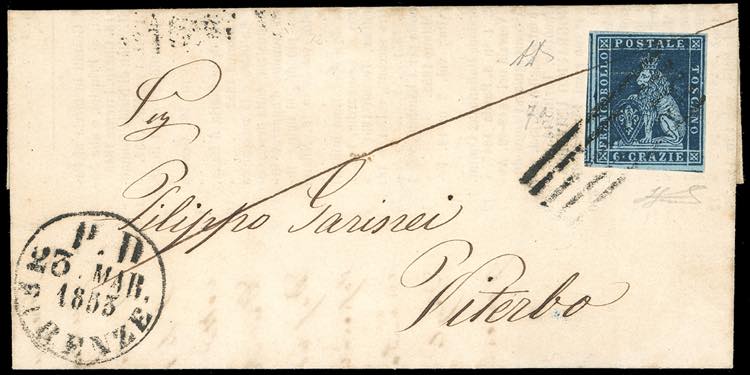 FRANCOBOLLO POSTALE TOSCANO
6 CRAZIE
Sig
Filippo Garinei
Viterbo
P. D
23 MAR.
1853
FIRENZE